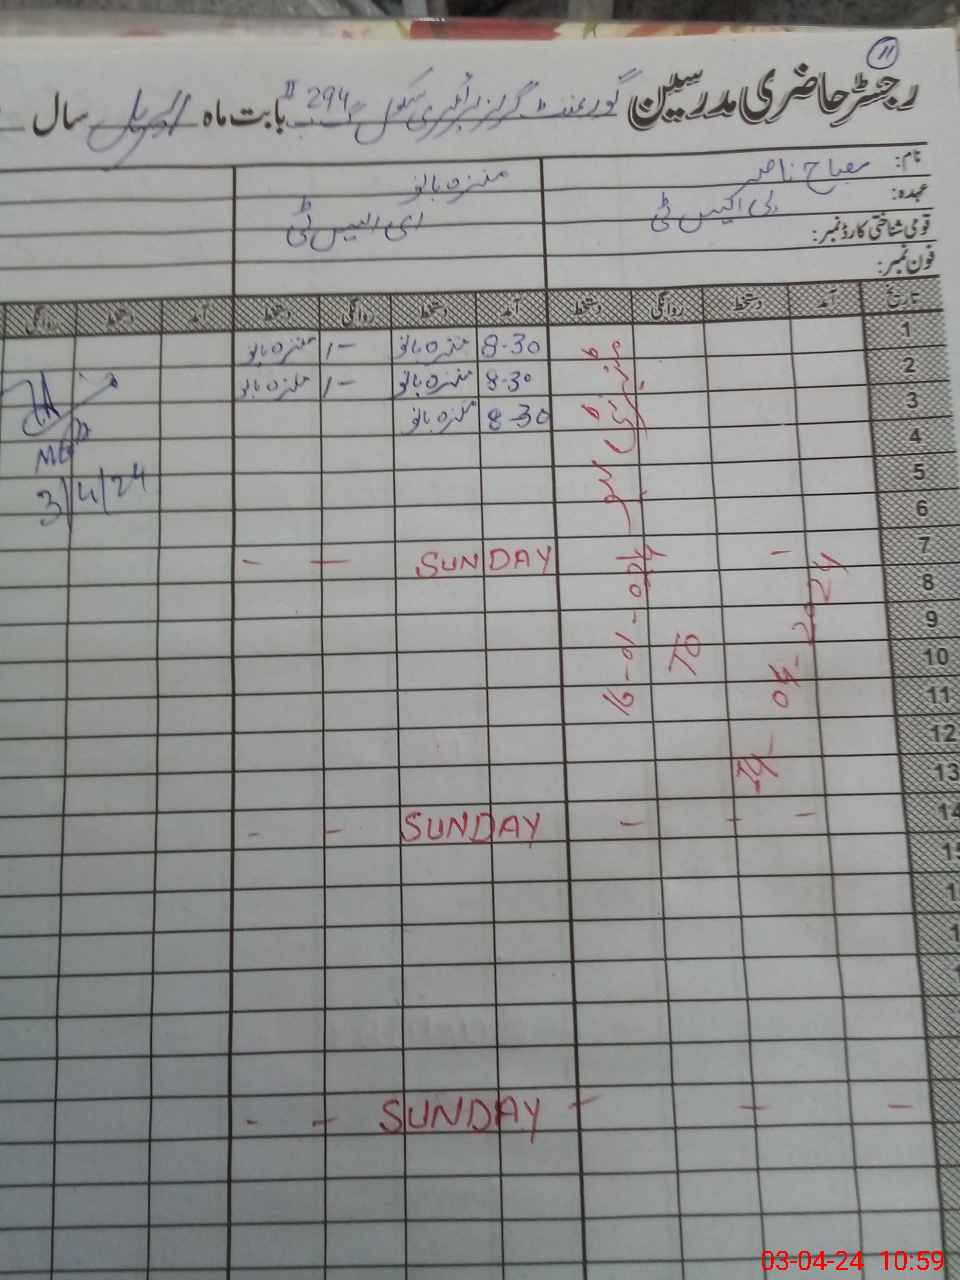 ۱۱
رجسٹر حاضری مدرسین گورنمنٹ گرلز پرائمری سکول 294 بابت ماہ اپریل سال
نام: مصباح ناصر منزہ بانو
عہدہ: ای ایس ٹی
قومی شناختی کارڈ نمبر:
فون نمبر:
تاریخ آمد دستخط روانگی دستخط آمد دستخط روانگی دستخط آمد دستخط روانگی
1 8-30 منزہ بانو 1- منزہ بانو
2 8-30 منزہ بانو 1- منزہ بانو
3 8-30 منزہ بانو
4
5
6
3/4/24
7 - SUNDAY - -
8
9
10
11
12
13
16-01-024
TO
04-2024
14 - - - SUNDAY - -
15
- - - SUNDAY - -
03-04-24 10:59